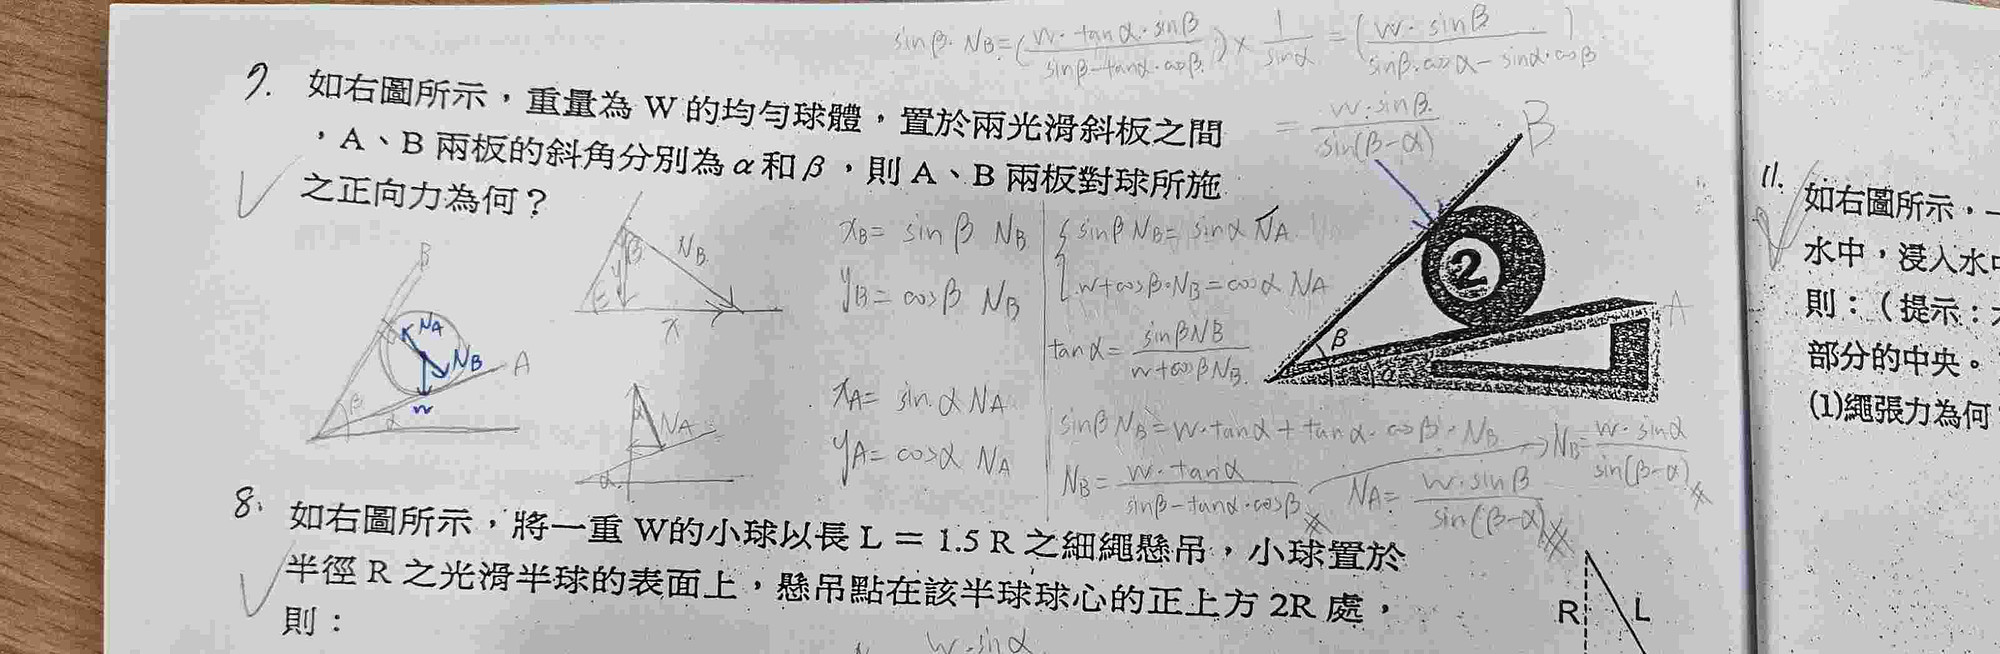 sinβ·N_B=(W·tanα·sinβ / sinβ-tanα·cosβ)×1/sinα=(W·sinβ / sinβ·cosα-sinα·cosβ)
=W·sinβ / sin(β-α)
7. 如右圖所示，重量為 W 的均勻球體，置於兩光滑斜板之間
，A、B 兩板的斜角分別為 α 和 β，則 A、B 兩板對球所施
之正向力為何？
B
N_A
N_B
A
W
β
α
β
N_B
y
x
N_A
α
x_B= sinβ N_B
y_B= cosβ N_B
x_A= sinα N_A
y_A= cosα N_A
sinβ N_B= sinα N_A
W+cosβ·N_B=cosα N_A
tanα= sinβN_B / W+cosβN_B
sinβ N_B=W·tanα+tanα·cosβ·N_B
N_B= W·tanα / sinβ-tanα·cosβ
N_B= W·sinα / sin(β-α)
N_A= W·sinβ / sin(β-α)
B
2
A
β
α
8. 如右圖所示，將一重 W的小球以長 L = 1.5 R 之細繩懸吊，小球置於
半徑 R 之光滑半球的表面上，懸吊點在該半球球心的正上方 2R 處，
則：
W·sinα
R
L
11. 如右圖所示，一
水中，浸入水
則：（提示：
部分的中央。
(1)繩張力為何